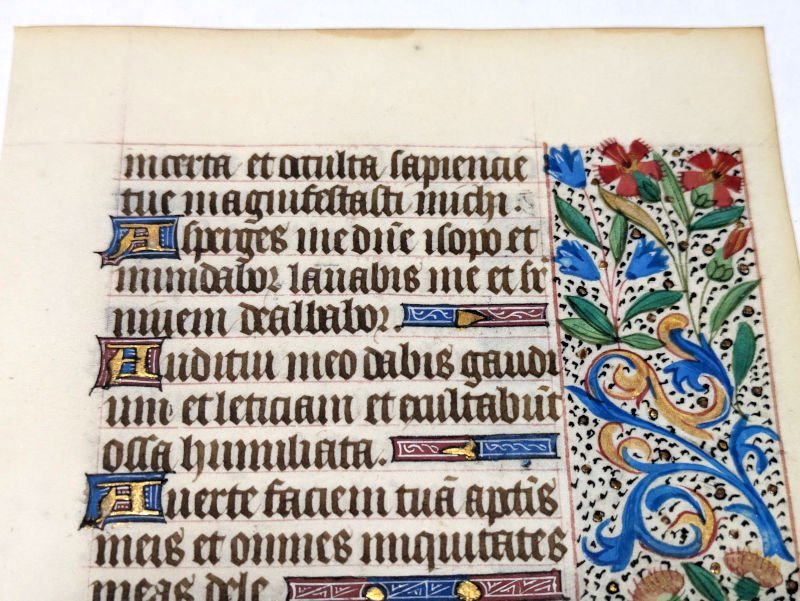 incerta et occulta sapiencie
tue magnifestasti michi.
Asperges me dñe isopo et
mundabor lauabis me et sr
niuem dealbabor.
Auditui meo dabis gaudi
um et leticiam et exultabũt
ossa humiliata.
Auerte faciem tuã a pctĩs
meis et omnes iniquitates
meas dele